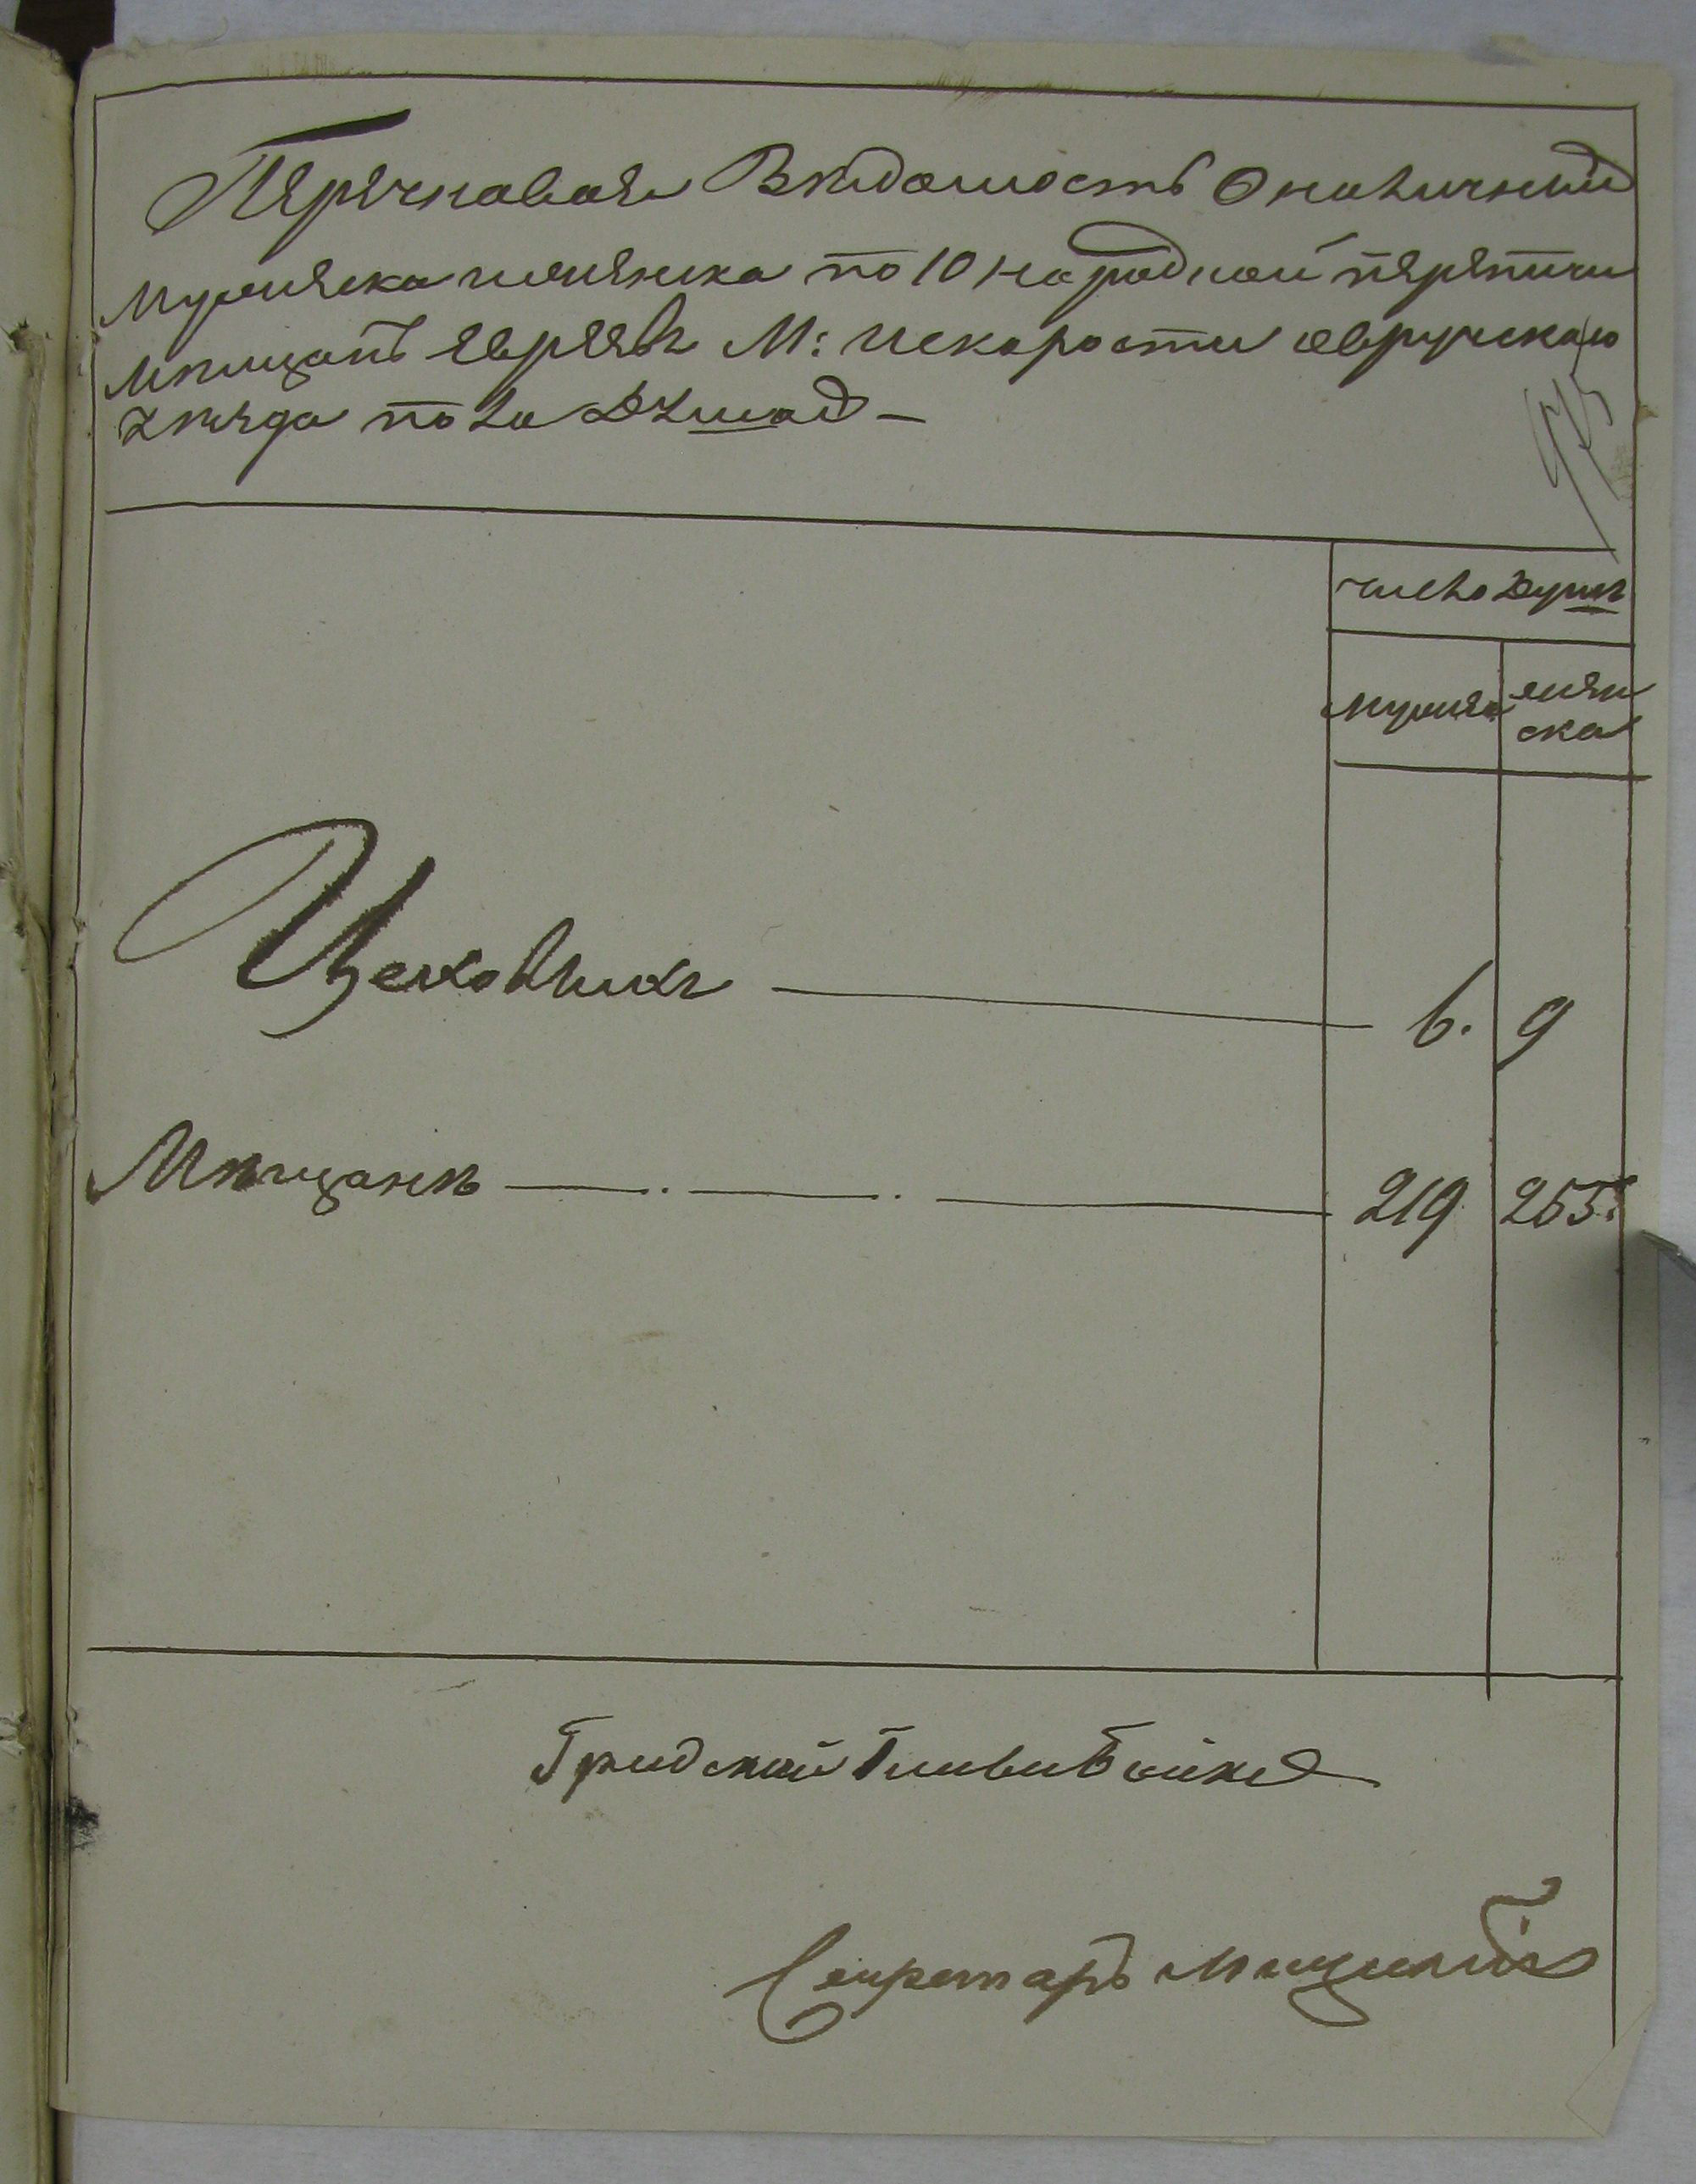 Перечневая Ведомость О наличный
мужеска и женска по 10 народной переписи
мещанъ евреевъ М: искорости овручскаго
уезда пола душад —
95
число Душъ
мужеска
женска
Цеховыхъ 6. 9
Мещанъ 219 255.
Градской Глава Бойко
Секретарь